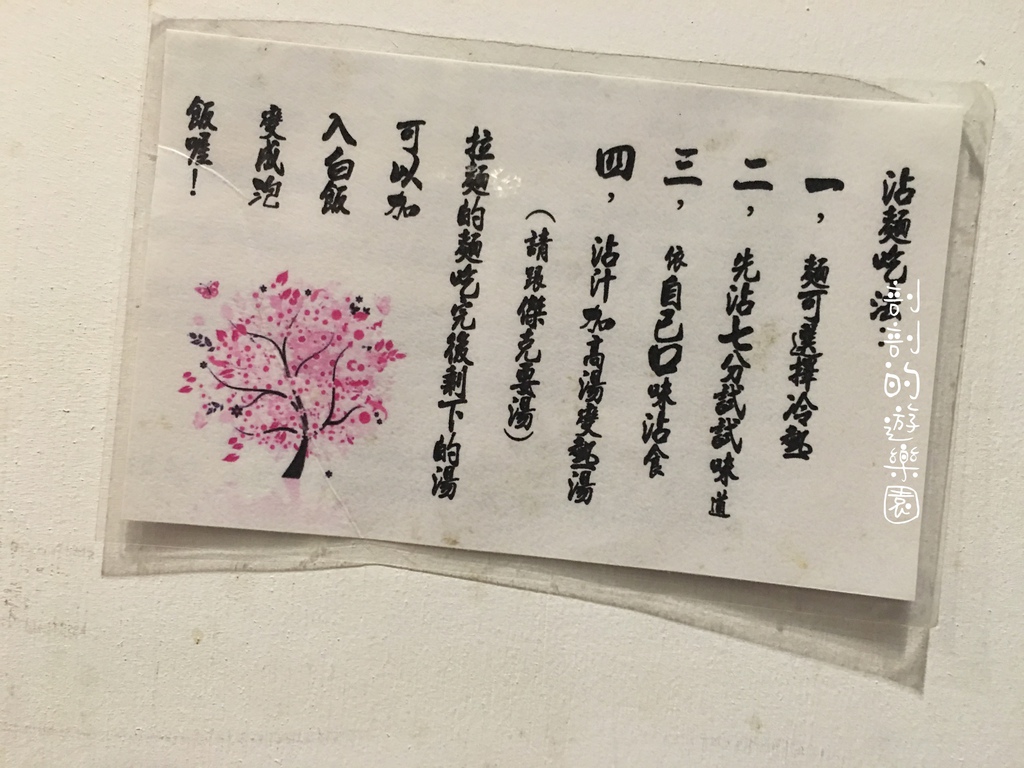 沾麵吃法：
一，麵可選擇冷熱
二，先沾七分試試味道
三，依自己口味沾食
四，沾汁加高湯變熱湯
（請跟傑克要湯）
拉麵的麵吃完後剩下的湯
可以加
入白飯
變成泡
飯喔！
剖剖的遊樂園